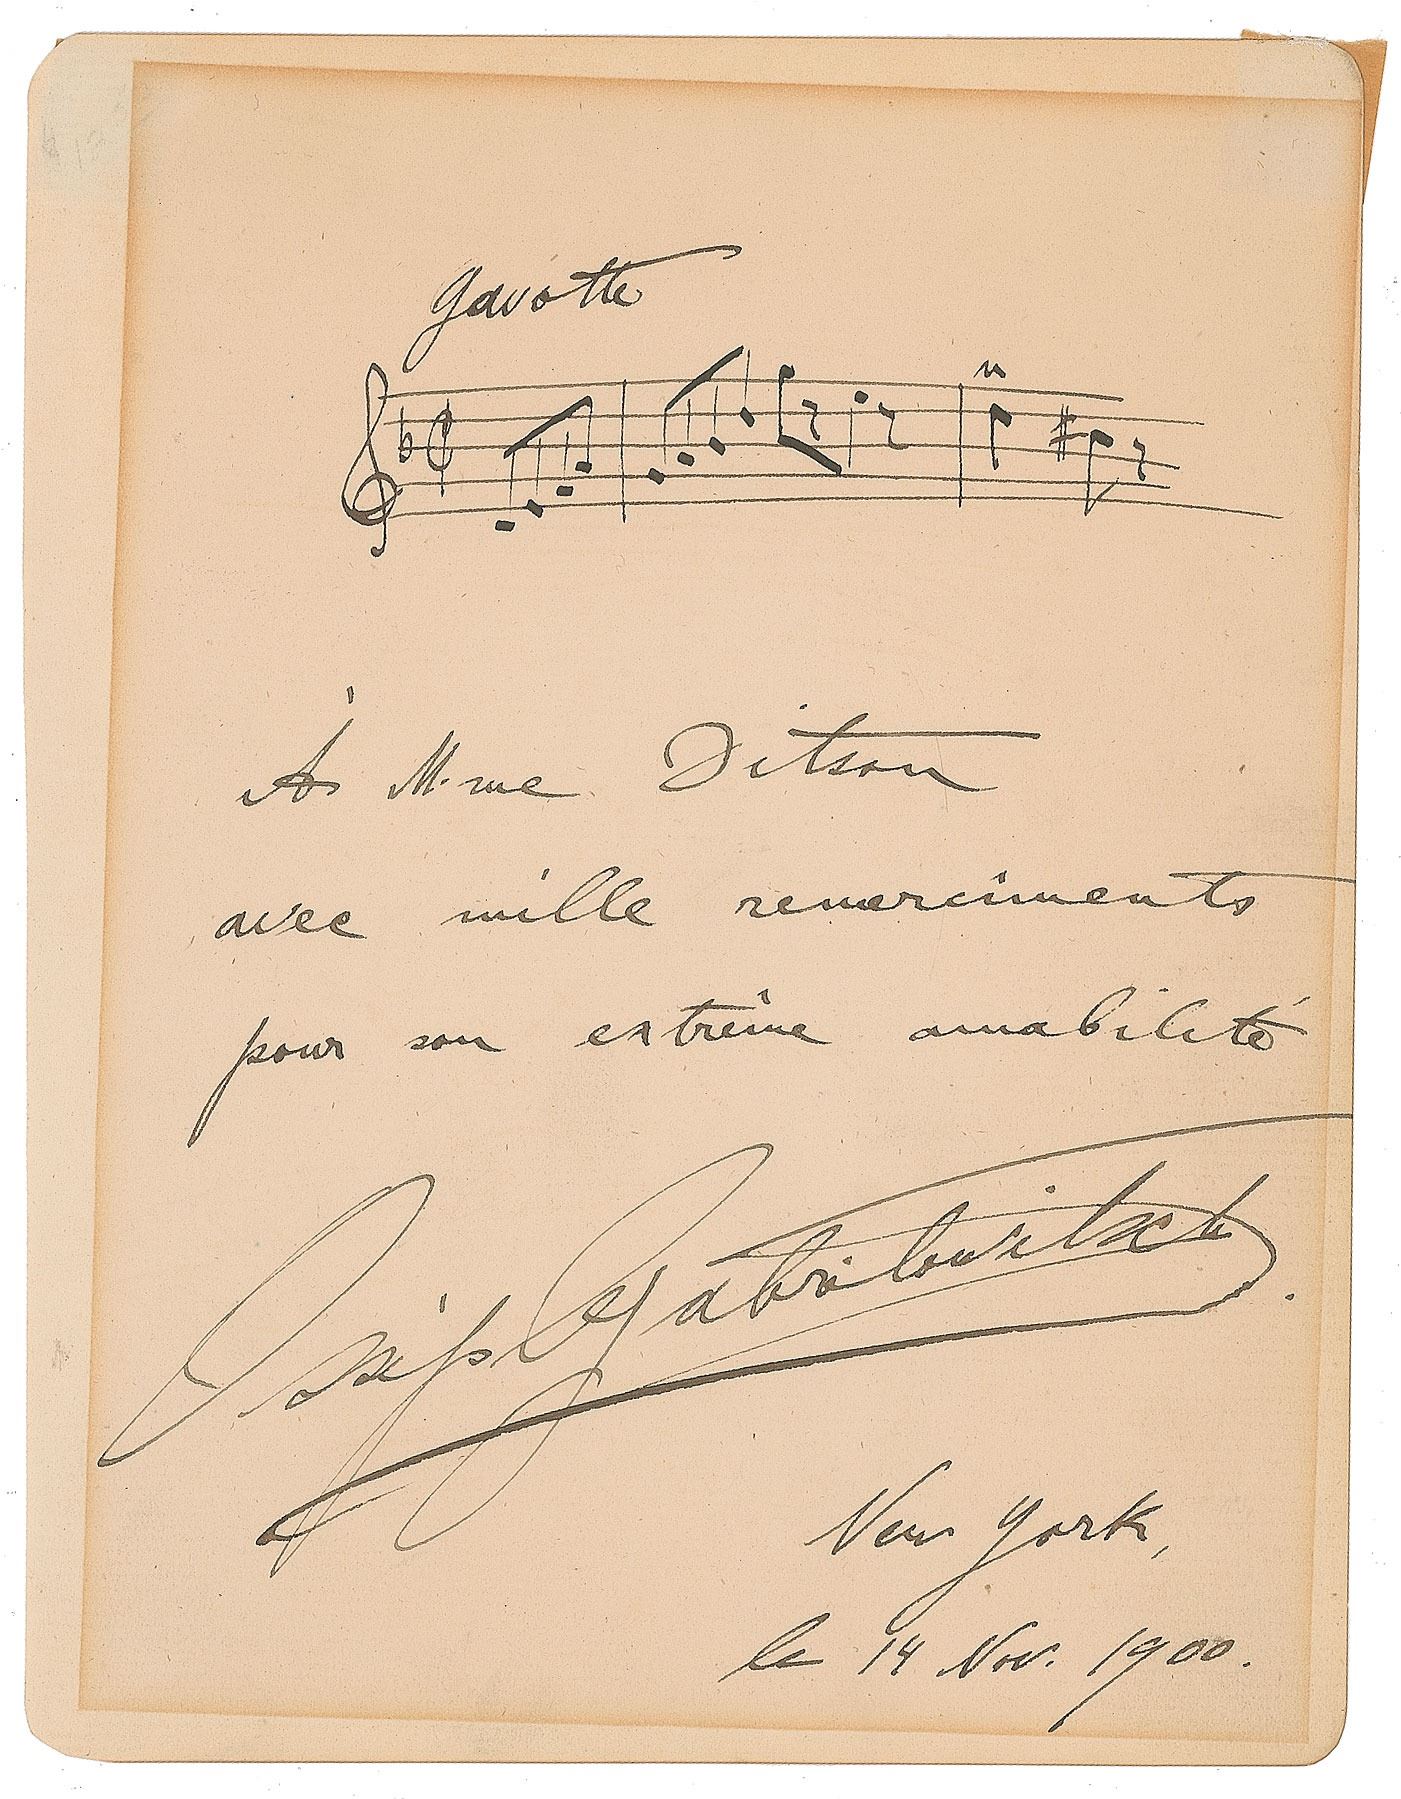 Gavotte
À M.me Ditson
avec mille remerciments
pour son extrême amabilité
Ossip Gabrilowitsch.
New York,
le 14 Nov. 1900.